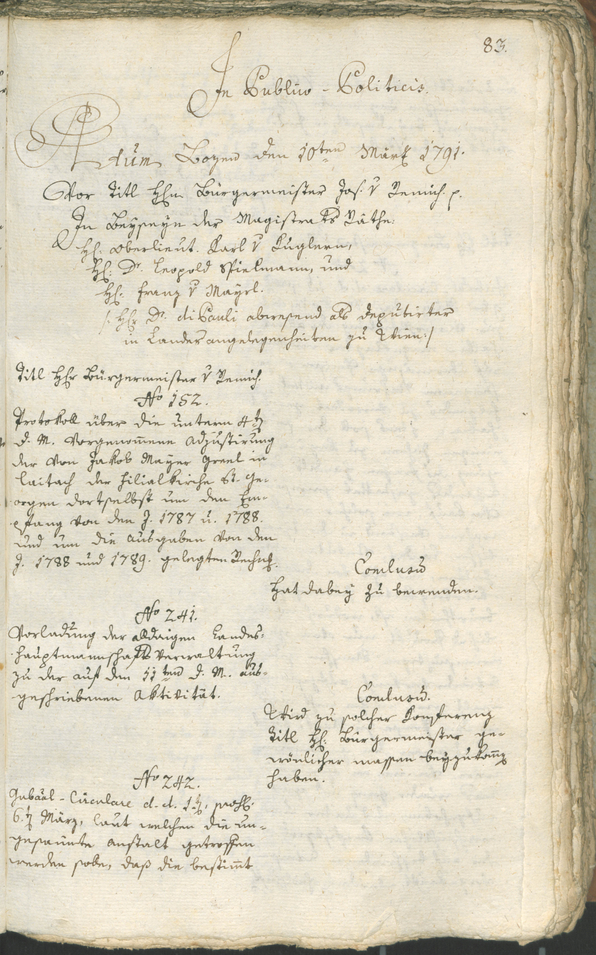 83.
In Publico-Politicis.
Actum Bozen den 10ten März 1791.
Vor Titl Hhrn Bürgermeister Jos. v Remich p.
In Beyseyn der Magistrats Räthe.
Hh. Oberlieut. Karl v Kuglern,
Hh. Dr. Leopold Spielmann, und
Hh. Franz v Mayrl.
/: Hh. Dr. di Pauli abwesend als Deputirter
in Landesangelegenheiten zu Wien :/
Titl Hhr Bürgermeister v Remich.
No 152.
Protokoll über die unterm 4t
d. M. vorgenommene Adjustirung
der von Jakob Mayer Greel in
Laitach der Filialkirche St. Ge-
orgen dortselbst um den Em-
pfang von den J. 1787 u. 1788.
und um die Ausgaben von den
J. 1788 und 1789. gelegten Rechn.
Conclusum
Hat dabey zu bewenden.
No 241.
Vorladung der alldaigen Landes-
hauptmannschafts Verwaltung
zu der auf den 11ten d. M. aus-
geschriebenen Aktivität.
Conclusum.
Wird zu solcher Konferenz
Titl Hh. Bürgermeister ge-
wöhnlicher massen beyzukommen
haben.
No 242.
Gubäal-Circulare d. d. 1t, praes.
6.t März, laut welchen die un-
gesäumte Anstalt getroffen
werden solle, daß die bestimmt